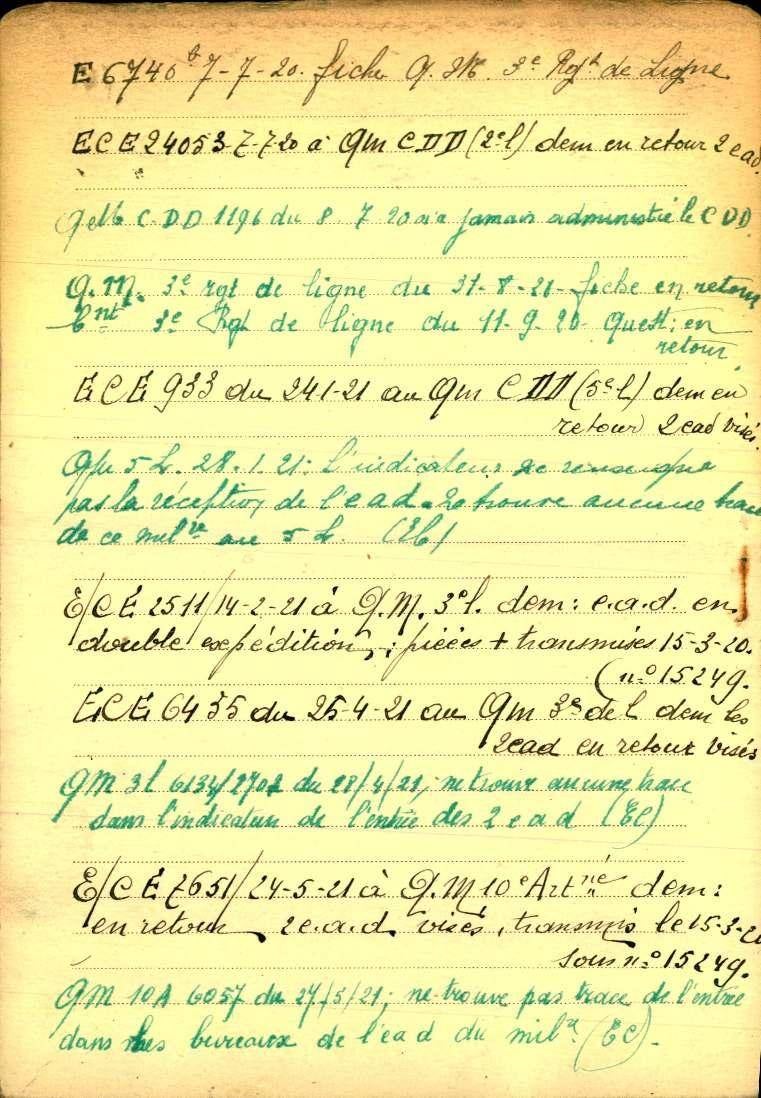 E 6740 7-7-20. fiche Q. M. 3e Rgt de Ligne
ECE 24053-7-7-20 à Qm CDD (2e l) dem en retour 2 ead.
C.D.D 1196 du 8. 7 20 n'a jamais administré le CDD
Q.M. 3e rgt de ligne du 31-8-21- fiche en retour
Cnt 3e Rgt de ligne du 11-9-20 Quest: en
retour
ECE 933 du 24 1-21 au Qm CDD (5e l) dem en
retour 2 ead visés.
5 L. 28.1.21: L'indicateur ne renseigne
pas la réception de l'ead. ne trouve aucune trace
de ce milre au 5 L. (EC)
E/CE 2511/14-2-21 à Q.M. 3e l. dem: e.a.d. en
double expédition, : pièces + transmises 15-3-20.
(no 15249.
ECE 6435 du 25-4-21 au Qm 3e de l dem les
2 ead en retour visés
QM 3l 6134/2702 du 28/4/21; ne trouve aucune trace
dans l'indicateur de l'entrée des 2 e a d (EC)
E/CE 7651/24-5-21 à Q.M 10e Artné dem:
en retour 2 e.a.d. visés, transmis le 15-3-20
sous no 15249.
QM 10A 6057 du 27/5/21; ne trouve pas trace de l'entrée
dans les bureaux de l'ead du milre (EC).